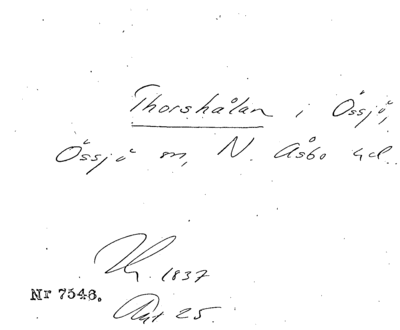 Thorshålan i Össjö,
Össjö sn, N. Åsbo hd.
1837
Nr 7546.
25.